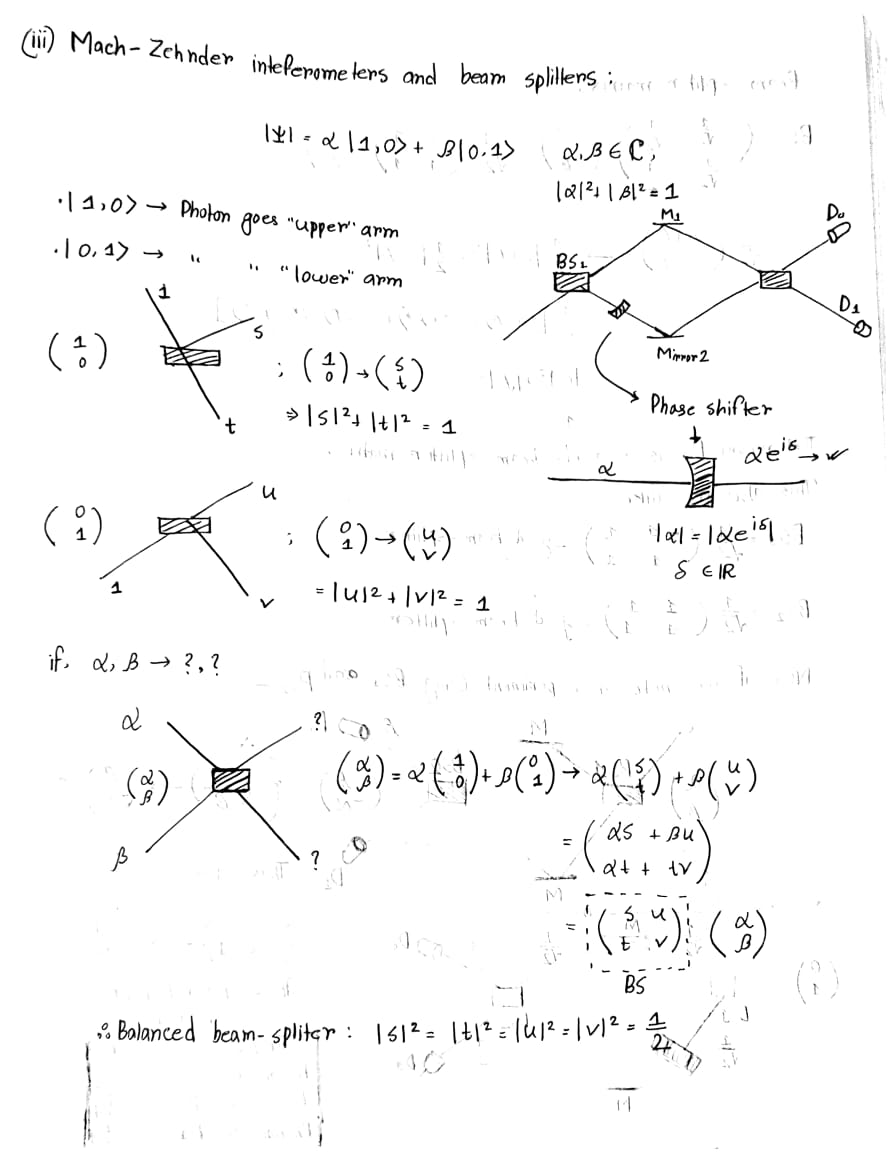 (iii) Mach-Zehnder inteferometers and beam splitters :
|Ψ| = α |1,0> + β|0.1> α,β ∈ ℂ,
|α|²+ |β|² = 1
·|1,0> → Photon goes "upper" arm
·|0,1> → " " "lower" arm
M1
D0
BS1
D1
Mirror 2
Phase shifter
α
αe^{iδ} → w
|α| = |αe^{iδ}|
δ ∈ IR
1
s
t
(1 0) ; (1 0) → (s t)
⇒ |s|²+ |t|² = 1
u
1
v
(0 1) ; (0 1) → (u v)
= |u|² + |v|² = 1
if. α, β → ?, ?
α
?
(α β)
β
?
(α β) = α(1 0) + β(0 1) → α(s t) + β(u v)
= (αs + βu
αt + tv)
= (s u
t v) (α β)
BS
∴ Balanced beam-spliter : |s|² = |t|² = |u|² = |v|² = 1/2